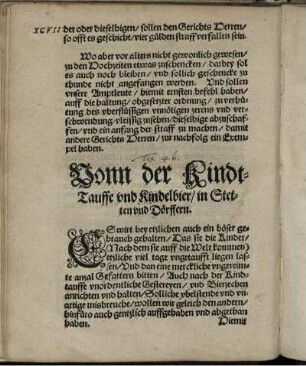 XCVII der oder dieselbigen / sollen den Gerichts Herren /
so offt es geschicht / vier gülden straff verfallen sein.
Wo aber vor alters nicht gewonlich gewesen /
zu den Hochzeiten etwas zuschencken / darbey sol
es auch noch bleiben / vnd sollich geschencke zu
thunde nicht angefangen werden. Vnd sollen
vnsere Amptleute / hiemit ernsten befehl haben /
auff die haltung / obgesetzter ordnung / zu verhü-
tung des vberflüssigen vnnötigen zerens vnd ver-
schwendung / vleissig zusehen / dieselbige abzuschaf-
fen / vnd ein anfang der straff zu machen / damit
andere Gerichts Herren / zur nachfolg ein Exem-
pel haben.
Vonn der Kindt-
Tauffe vnd Kindelbier / in Stet-
ten vnd Dörffern.
ES wirt bey etzlichen auch ein böser ge-
brauch gehalten / Das sie die Kinder /
Nach dem sie auff die Welt kommen /
etzliche viel tage vngetaufft liegen las-
sen / Vnd dan eine merckliche vngereim-
te anzal Gefattern bitten / Auch nach der Kind-
tauffe vnordentliche Gestereyen / vnd Bierzechen
anrichten vnd halten / Solliche vbelstende vnd vn-
artige misbreuche / wollen wir gleich den andern /
hinfüro auch gentzlich auffgehaben vnd abgethan
haben.
Diemit